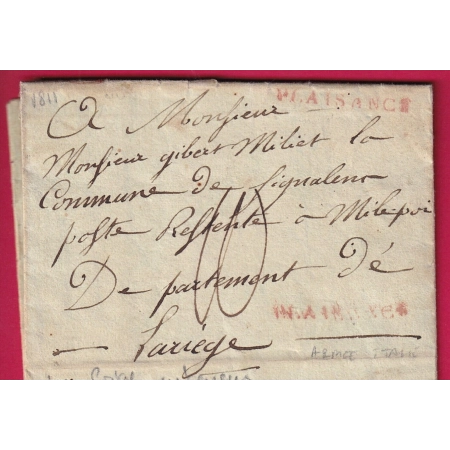 1811
PLAISANCE
A Monsieur
Monsieur gibert Miliet la
Commune de Signalens
poste Restente à Milepoi
De partement dé
PLAISANCE
Lariége
ARMEE ITALIE